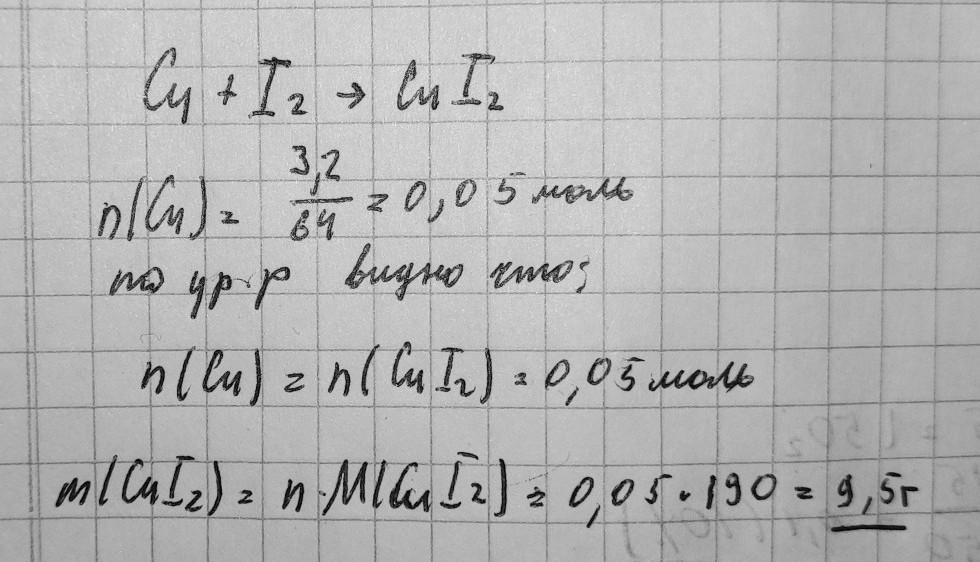 Cu + I₂ → CuI₂
n(Cu) = 3,2/64 = 0,05 моль
по ур-р видно что:
n(Cu) = n(CuI₂) = 0,05 моль
m(CuI₂) = n·M(CuI₂) = 0,05·190 = 9,5г